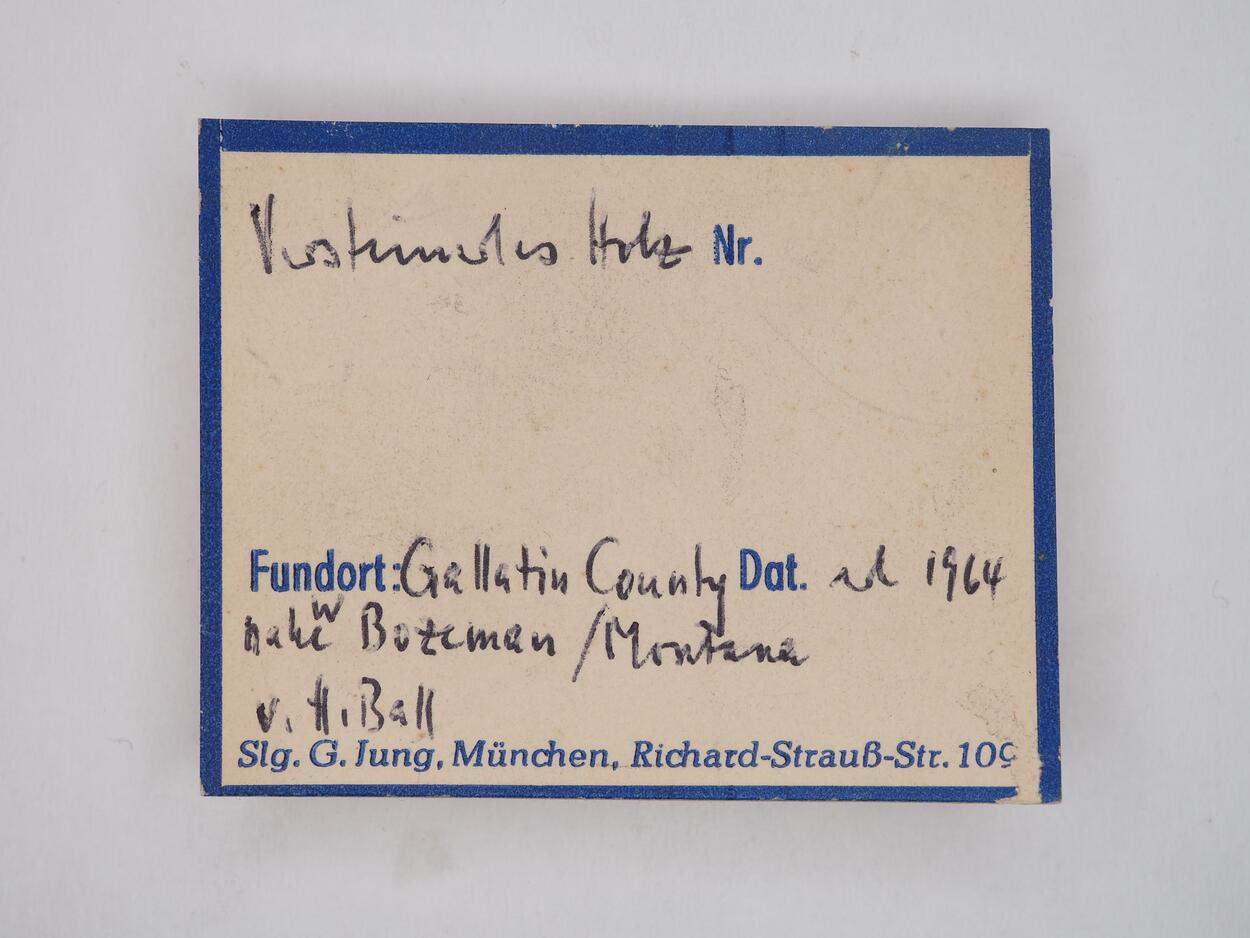 Versteinertes Holz Nr.
Fundort: Gallatin County Dat. 1964
nahe W Bozeman / Montana
v. H. Ball
Slg. G. Jung, München, Richard-Strauß-Str. 109